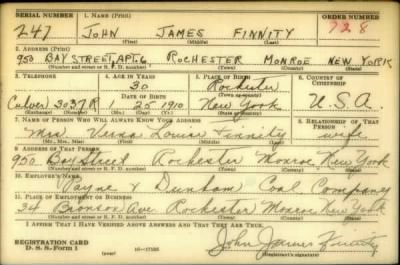 SERIAL NUMBER 1. NAME (Print) ORDER NUMBER
247 JOHN JAMES FINNITY 728
(First) (Middle) (Last)
2. ADDRESS (Print)
950 BAY STREET, APT. 6 ROCHESTER MONROE NEW YORK
(Number and street or R. F. D. number) (Town) (County) (State)
3. TELEPHONE 4. AGE IN YEARS 5. PLACE OF BIRTH 6. COUNTRY OF CITIZENSHIP
30 Rochester
DATE OF BIRTH (Town or county)
Culver 3037R 1 25 1910 New York U.S.A.
(Exchange) (Number) (Mo.) (Day) (Yr.) (State or country)
7. NAME OF PERSON WHO WILL ALWAYS KNOW YOUR ADDRESS 8. RELATIONSHIP OF THAT PERSON
Mrs. Verna Louise Finnity wife
(Mr., Mrs., Miss) (First) (Middle) (Last)
9. ADDRESS OF THAT PERSON
950 Bay Street Rochester Monroe New York
(Number and street or R. F. D. number) (Town) (County) (State)
10. EMPLOYER'S NAME
Payne & Dunham Coal Company
11. PLACE OF EMPLOYMENT OR BUSINESS
34 Bronson Ave Rochester Monroe New York
(Number and street or R. F. D. number) (Town) (County) (State)
I AFFIRM THAT I HAVE VERIFIED ABOVE ANSWERS AND THAT THEY ARE TRUE.
REGISTRATION CARD John James Finnity
D. S. S. Form 1 (over) 16-17105 (Registrant's signature)